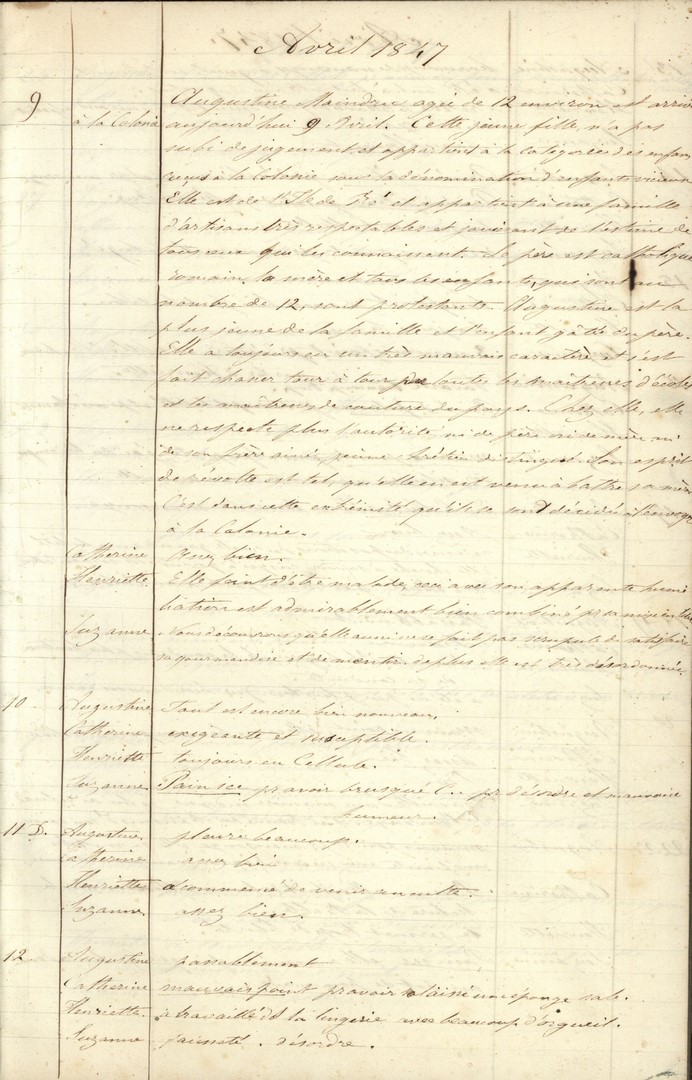 Avril 1847
9 Augustine Maindru agée de 12 environ est arrivée
à la Colonie aujourd'hui 9 Avril. Cette jeune fille, n'a pas
subi de jugement et appartient à la catégorie des enfans
reçus à la Colonie sous la dénomination d'enfants vicieux
Elle est de l'Ile de Ré et appartient à une famille
d'artisans très respectables et jouissant de l'estime de
tous ceux qui les connaissent. Le père est catholique
romain, la mère et tous les enfants, qui sont au
nombre de 12, sont protestants. Augustine est la
plus jeune de la famille et l'enfant gâté du père.
Elle a toujours eu un très mauvais caractère et s'est
fait chasser tour à tour par toutes les maîtresses d'école
et les maîtresses de couture du pays. Chez elle, elle
ne respecte plus l'autorité ni de père ni de mère ni
de son frère ainé, jeune chrétien distingué. Son esprit
de révolte est tel, qu'elle en est venue à battre sa mère
C'est dans cette extrémité qu'ils se sont décidés à l'envoyer
à la Colonie.
Catherine assez bien.
Henriette Elle feint d'être malade, ceci avec son apparente humi
liation est admirablement bien combiné pr
Suzanne Nous découvrons qu'elle aussi ne se fait pas scrupule de satisfaire
sa gourmandise et de mentir, de plus elle est très désordonnée.
10 Augustine Tout est encore bien nouveau.
Catherine exigeante et susceptible.
Henriette toujours en Cellule.
Suzanne Pain sec pr avoir brusqué C.. pr désordre et mauvaise
humeur.
11 D. Augustine pleure beaucoup.
Catherine assez bien
Henriette a commencé de venir au culte.
Suzanne assez bien.
12 Augustine passablement
Catherine mauvais point pr avoir laissé une éponge sale.
Henriette a travaillé à la lingerie avec beaucoup d'orgueil.
Suzanne fausseté. désordre.